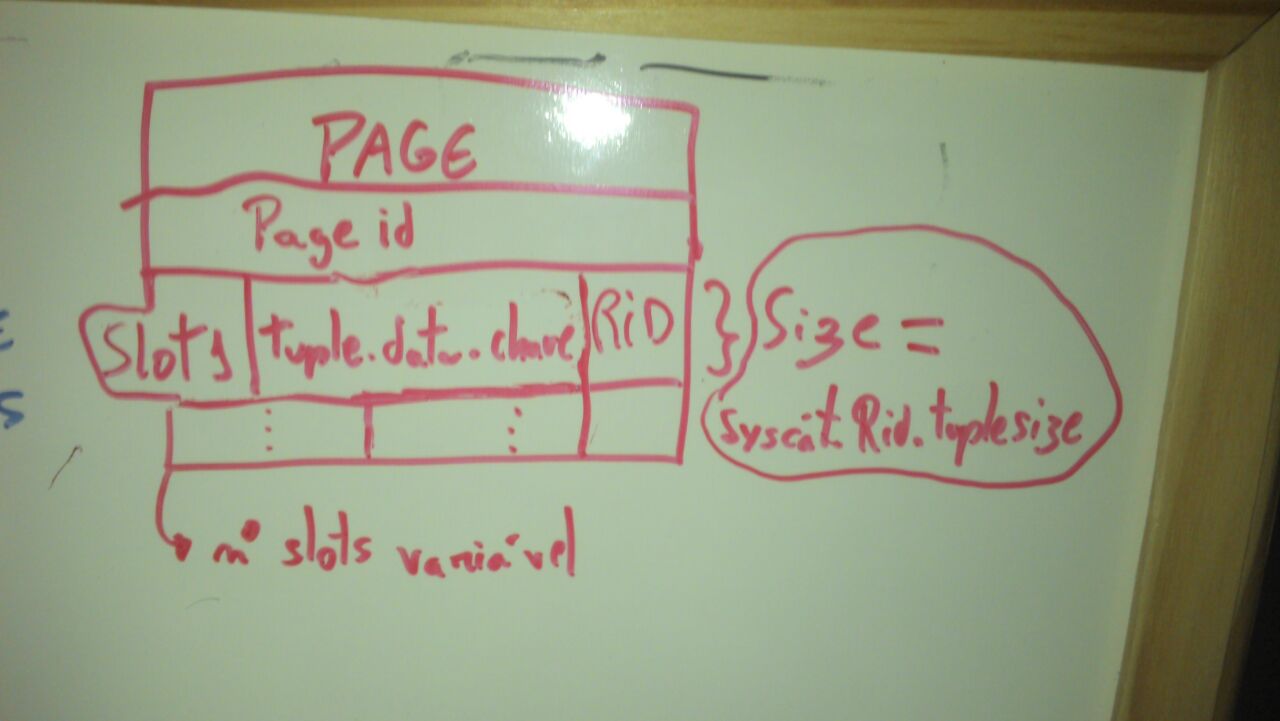 PAGE
Page id
Slot 1 tuple.data.chave RiD } Size =
syscat.Rid.tuplesize
nº slots variável